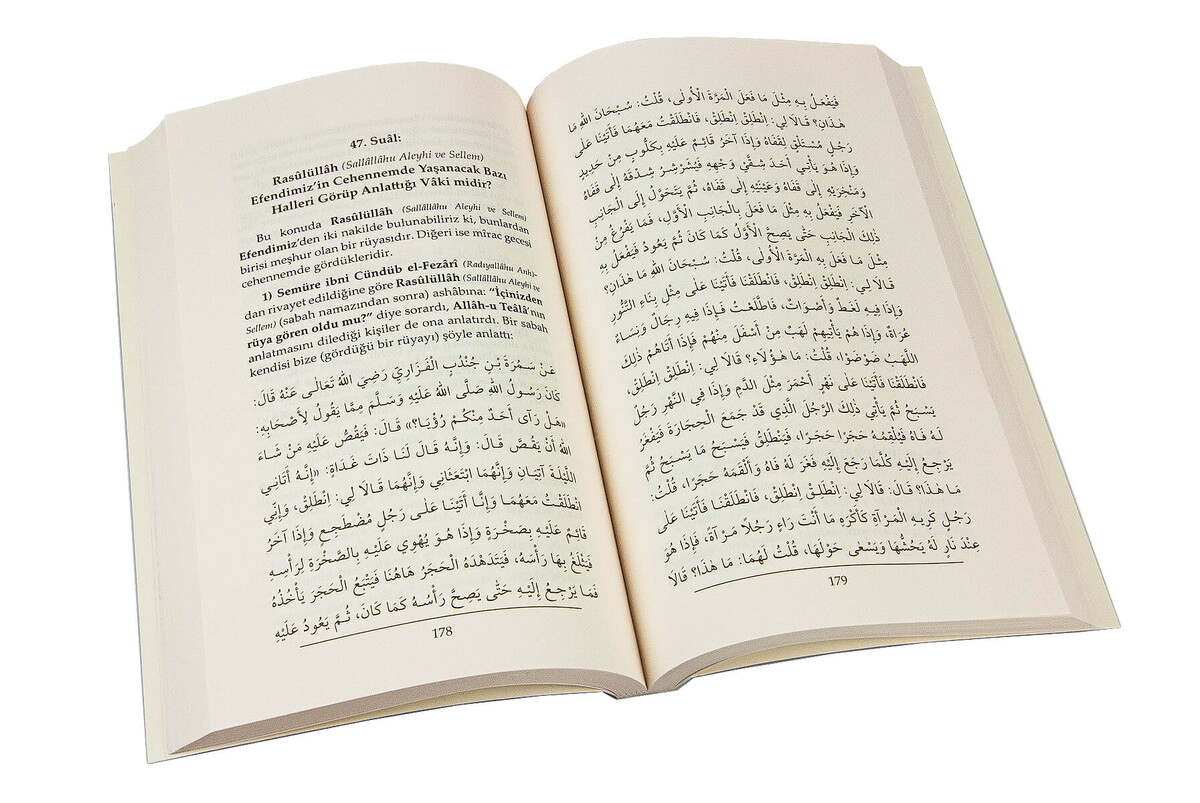 47. Suâl:
Rasûlüllâh (Sallâllâhu Aleyhi ve Sellem)
Efendimiz'in Cehennemde Yaşanacak Bazı
Halleri Görüp Anlattığı Vâki midir?
Bu konuda Rasûlüllâh (Sallâllâhu Aleyhi ve Sellem)
Efendimiz'den iki nakilde bulunabiliriz ki, bunlardan
birisi meşhur olan bir rüyasıdır. Diğeri ise mîrac gecesi
cehennemde gördükleridir.
1) Semüre ibni Cündüb el-Fezârî (Radıyallâhu Anh)-
dan rivayet edildiğine göre Rasûlüllâh (Sallâllâhu Aleyhi ve
Sellem) (sabah namazından sonra) ashâbına: "İçinizden
rüya gören oldu mu?" diye sorardı, Allâh-u Teâlâ'nın
anlatmasını dilediği kişiler de ona anlatırdı. Bir sabah
kendisi bize (gördüğü bir rüyayı) şöyle anlattı:
عَنْ سَمُرَةَ بْنِ جُنْدُبٍ الْفَزَارِيِّ رَضِيَ اللهُ تَعَالَى عَنْهُ قَالَ:
كَانَ رَسُولُ اللهِ صَلَّى اللهُ عَلَيْهِ وَسَلَّمَ مِمَّا يَقُولُ لِأَصْحَابِهِ:
«هَلْ رَآى أَحَدٌ مِنْكُمْ رُؤْيَا؟» قَالَ: فَيَقُصُّ عَلَيْهِ مَنْ شَاءَ
اللهُ أَنْ يَقُصَّ قَالَ: وَإِنَّهُ قَالَ لَنَا ذَاتَ غَدَاةٍ: «إِنَّهُ أَتَانِي
اللَّيْلَةَ آتِيَانِ وَإِنَّهُمَا ابْتَعَثَانِي وَإِنَّهُمَا قَالَا لِي: اِنْطَلِقْ، وَإِنِّي
انْطَلَقْتُ مَعَهُمَا وَإِنَّا أَتَيْنَا عَلَى رَجُلٍ مُضْطَجِعٍ وَإِذَا آخَرُ
قَائِمٌ عَلَيْهِ بِصَخْرَةٍ وَإِذَا هُوَ يُهْوِي عَلَيْهِ بِالصَّخْرَةِ لِرَأْسِهِ
فَيَثْلَغُ بِهَا رَأْسَهُ، فَيَتَدَهْدَهُ الْحَجَرُ هَاهُنَا فَيَتْبَعُ الْحَجَرَ يَأْخُذُهُ
فَمَا يَرْجِعُ إِلَيْهِ حَتَّى يَصِحَّ رَأْسُهُ كَمَا كَانَ، ثُمَّ يَعُودُ عَلَيْهِ
178
فَيَفْعَلُ بِهِ مِثْلَ مَا فَعَلَ الْمَرَّةَ الْأُولَى، قُلْتُ: سُبْحَانَ اللهِ مَا
هٰذَانِ؟ قَالَا لِي: اِنْطَلِقْ اِنْطَلِقْ، فَانْطَلَقْتُ مَعَهُمَا فَأَتَيْنَا عَلَى
رَجُلٍ مُسْتَلْقٍ لِقَفَاهُ وَإِذَا آخَرُ قَائِمٌ عَلَيْهِ بِكَلُّوبٍ مِنْ حَدِيدٍ
وَإِذَا هُوَ يَأْتِي أَحَدَ شِقَّيْ وَجْهِهِ فَيُشَرْشِرُ شِدْقَهُ إِلَى قَفَاهُ
وَمَنْخِرَيْهِ إِلَى قَفَاهُ وَعَيْنَيْهِ إِلَى قَفَاهُ، ثُمَّ يَتَحَوَّلُ إِلَى الْجَانِبِ
الْآخَرِ فَيَفْعَلُ بِهِ مِثْلَ مَا فَعَلَ بِالْجَانِبِ الْأَوَّلِ، فَمَا يَفْرُغُ مِنْ
ذٰلِكَ الْجَانِبِ حَتَّى يَصِحَّ الْأَوَّلُ كَمَا كَانَ ثُمَّ يَعُودُ فَيَفْعَلُ بِهِ
مِثْلَ مَا فَعَلَ بِهِ الْمَرَّةَ الْأُولَى، قُلْتُ: سُبْحَانَ اللهِ مَا هٰذَانِ؟
قَالَا لِي: اِنْطَلِقْ اِنْطَلِقْ، فَانْطَلَقْنَا فَأَتَيْنَا عَلَى مِثْلِ بِنَاءِ التَّنُّورِ
وَإِذَا فِيهِ لَغَطٌ وَأَصْوَاتٌ، فَاطَّلَعْتُ فَإِذَا فِيهِ رِجَالٌ وَنِسَاءٌ
عُرَاةٌ، وَإِذَا هُمْ يَأْتِيهِمْ لَهَبٌ مِنْ أَسْفَلَ مِنْهُمْ فَإِذَا أَتَاهُمْ ذٰلِكَ
اللَّهَبُ ضَوْضَوْا، قُلْتُ: مَا هٰؤُلَاءِ؟ قَالَا لِي: اِنْطَلِقْ اِنْطَلِقْ،
فَانْطَلَقْنَا فَأَتَيْنَا عَلَى نَهْرٍ أَحْمَرَ مِثْلَ الدَّمِ وَإِذَا فِي النَّهْرِ رَجُلٌ
يَسْبَحُ ثُمَّ يَأْتِي ذٰلِكَ الرَّجُلُ الَّذِي قَدْ جَمَعَ الْحِجَارَةَ فَيَفْغَرُ
لَهُ فَاهُ فَيُلْقِمُهُ حَجَرًا حَجَرًا، فَيَنْطَلِقُ فَيَسْبَحُ مَا يَسْبَحُ ثُمَّ
يَرْجِعُ إِلَيْهِ كُلَّمَا رَجَعَ إِلَيْهِ فَغَرَ لَهُ فَاهُ وَأَلْقَمَهُ حَجَرًا، قُلْتُ:
مَا هٰذَا؟ قَالَ: قَالَا لِي: اِنْطَلِقْ اِنْطَلِقْ، فَانْطَلَقْنَا فَأَتَيْنَا عَلَى
رَجُلٍ كَرِيهِ الْمَرْآةِ كَأَكْرَهِ مَا أَنْتَ رَاءٍ رَجُلًا مَرْآةً، فَإِذَا هُوَ
عِنْدَ نَارٍ لَهُ يَحُشُّهَا وَيَسْعَى حَوْلَهَا، قُلْتُ لَهُمَا: مَا هٰذَا؟ قَالَا
179